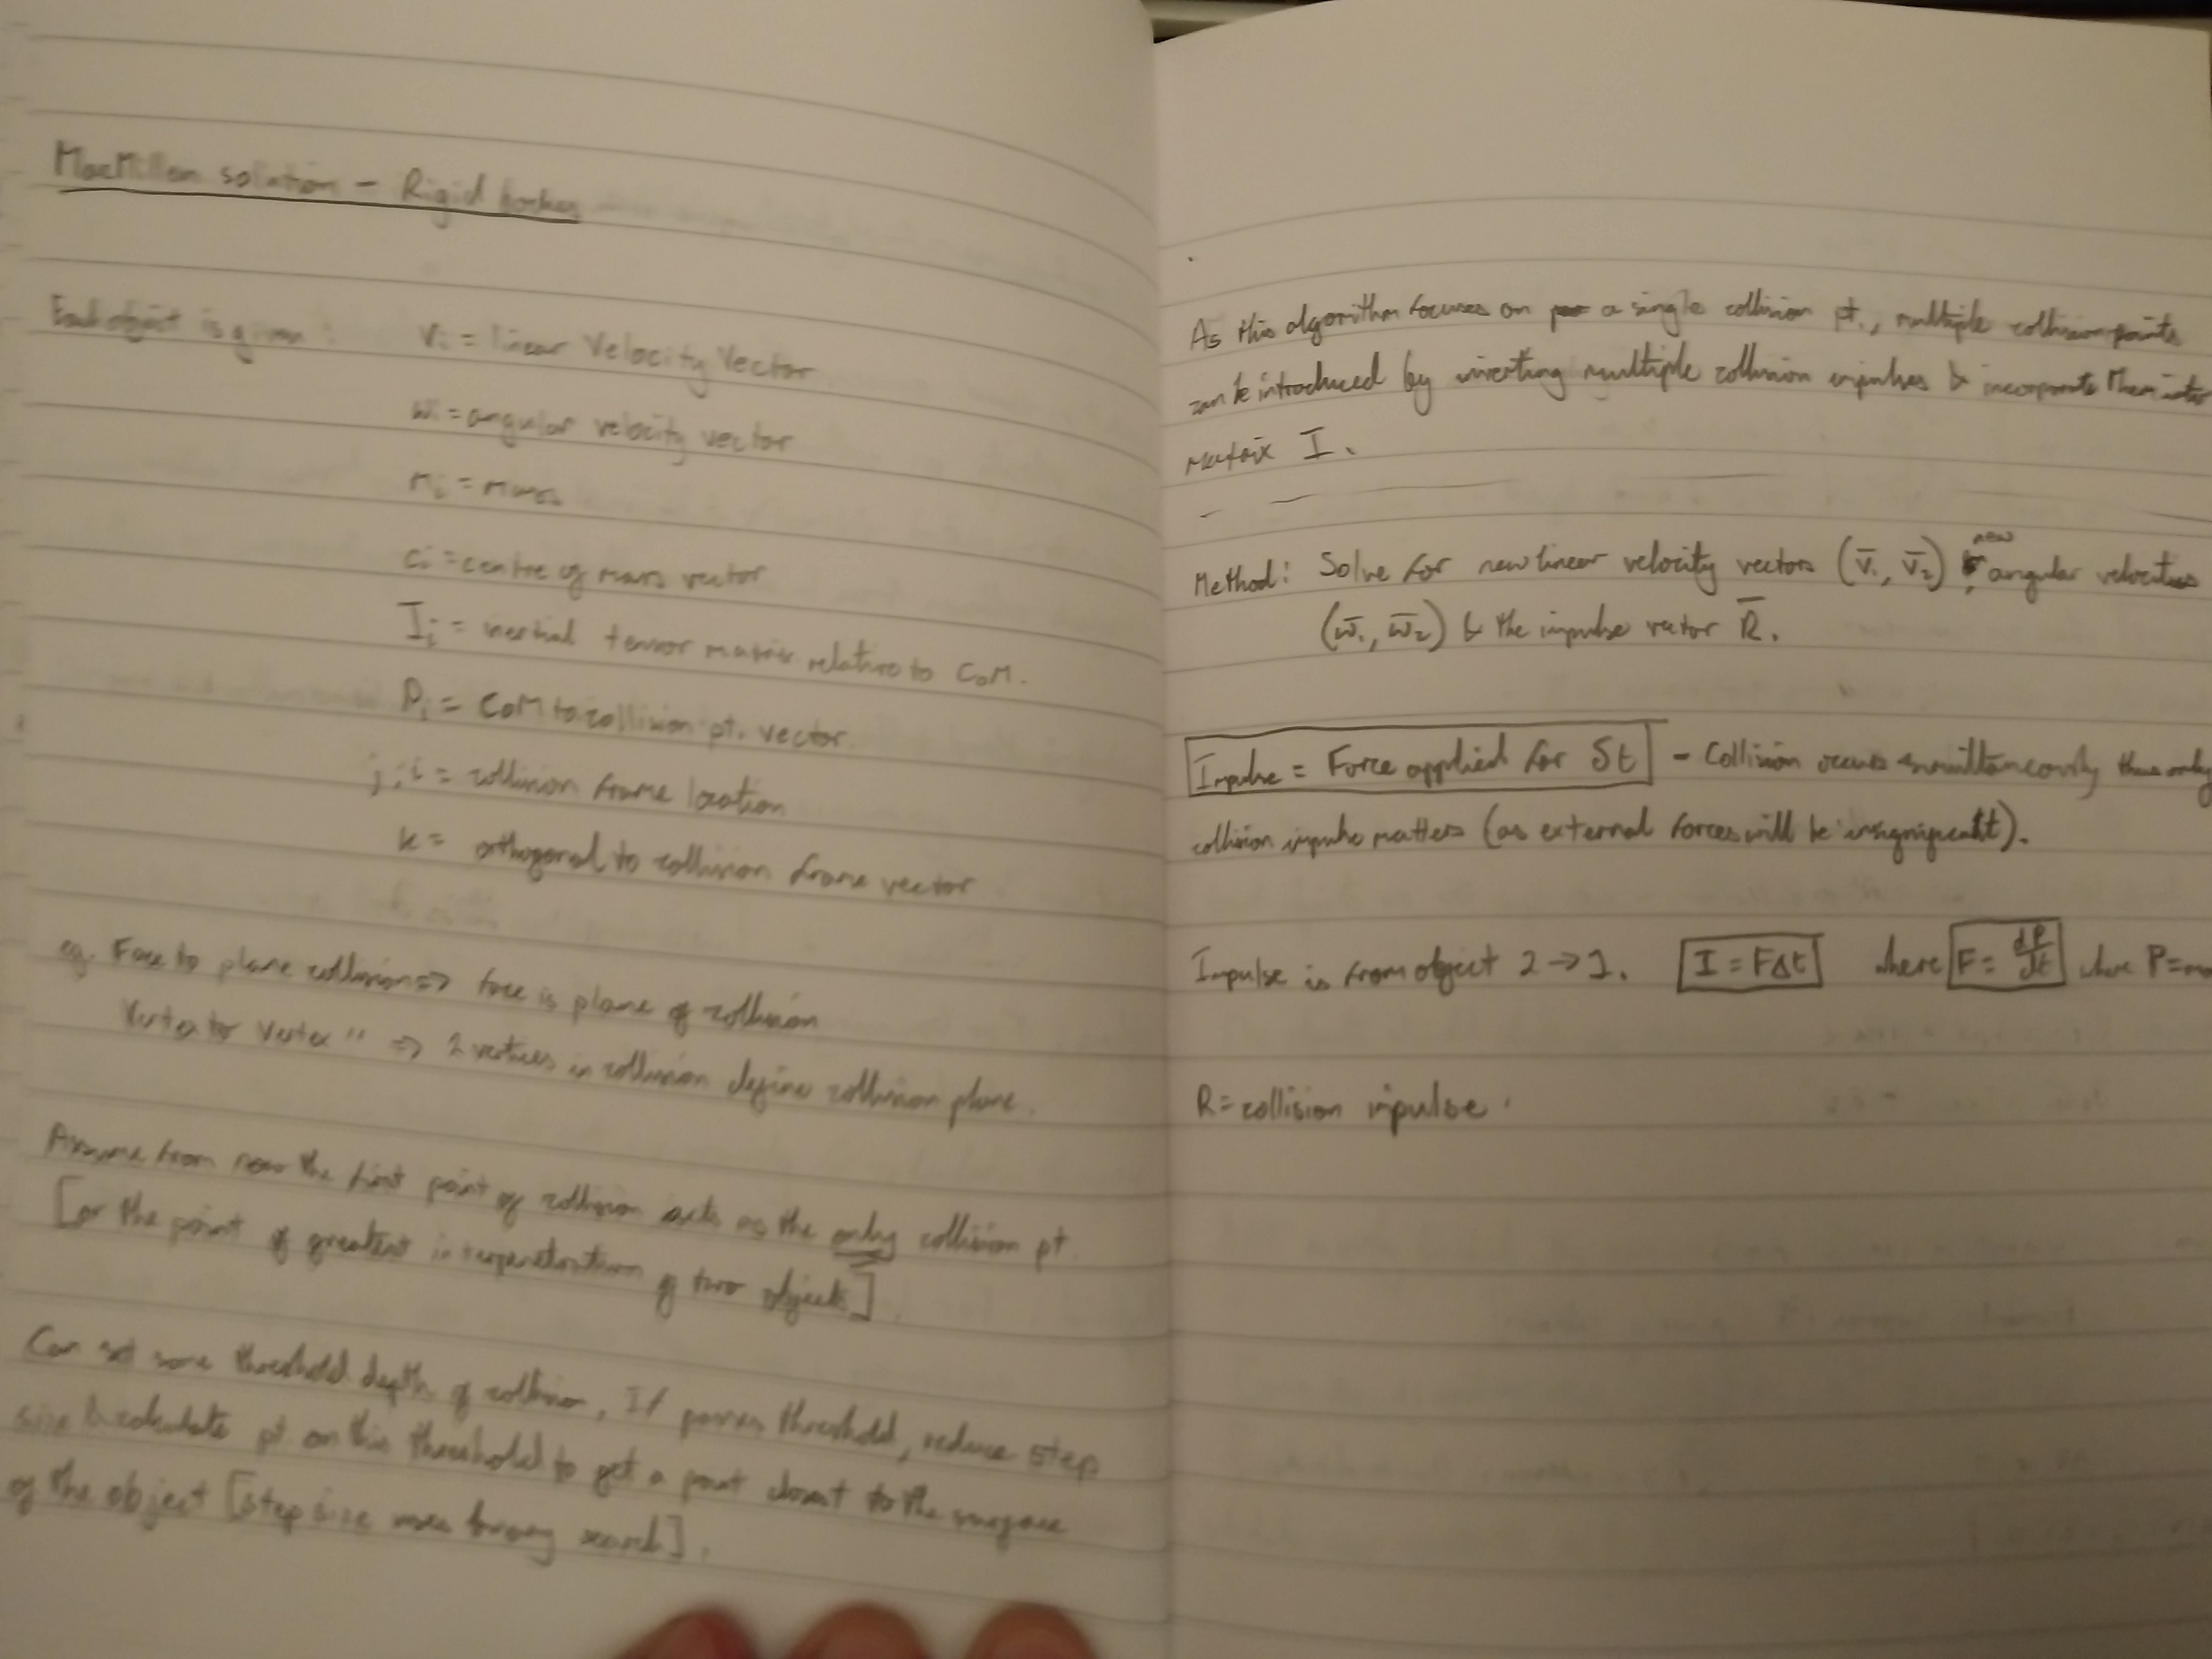 MacMillan solution - Rigid bodies
Each object is given: Vi = linear Velocity Vector
wi = angular velocity vector
mi = mass
ci = centre of mass vector
Ii = inertial tensor matrix relative to CoM.
Pi = CoM to collision pt. vector
j, i = collision frame location
k = orthogonal to collision frame vector
eg. Face to plane collision => face is plane of collision
Vertex to Vertex " => 2 vertices in collision define collision plane.
Assume from now the first point of collision acts as the only collision pt.
[or the point of greatest interpenetration of two objects]
Can set some threshold depth of collision, If passes threshold, reduce step
size & calculate pt on this threshold to get a point closest to the surface
of the object [step size uses binary search].
As this algorithm focuses on a single collision pt., multiple collision points
can be introduced by inverting multiple collision impulses & incorporate them into
matrix I.
Method: Solve for new linear velocity vectors (v̄₁, v̄₂), new angular velocities
(w̄₁, w̄₂) & the impulse vector R̄.
Impulse = Force applied for δt - Collision occurs simultaneously thus only
collision impulse matters (as external forces will be insignificant).
Impulse is from object 2 → 1. I = FΔt where F = dP/dt where P=
R = collision impulse.